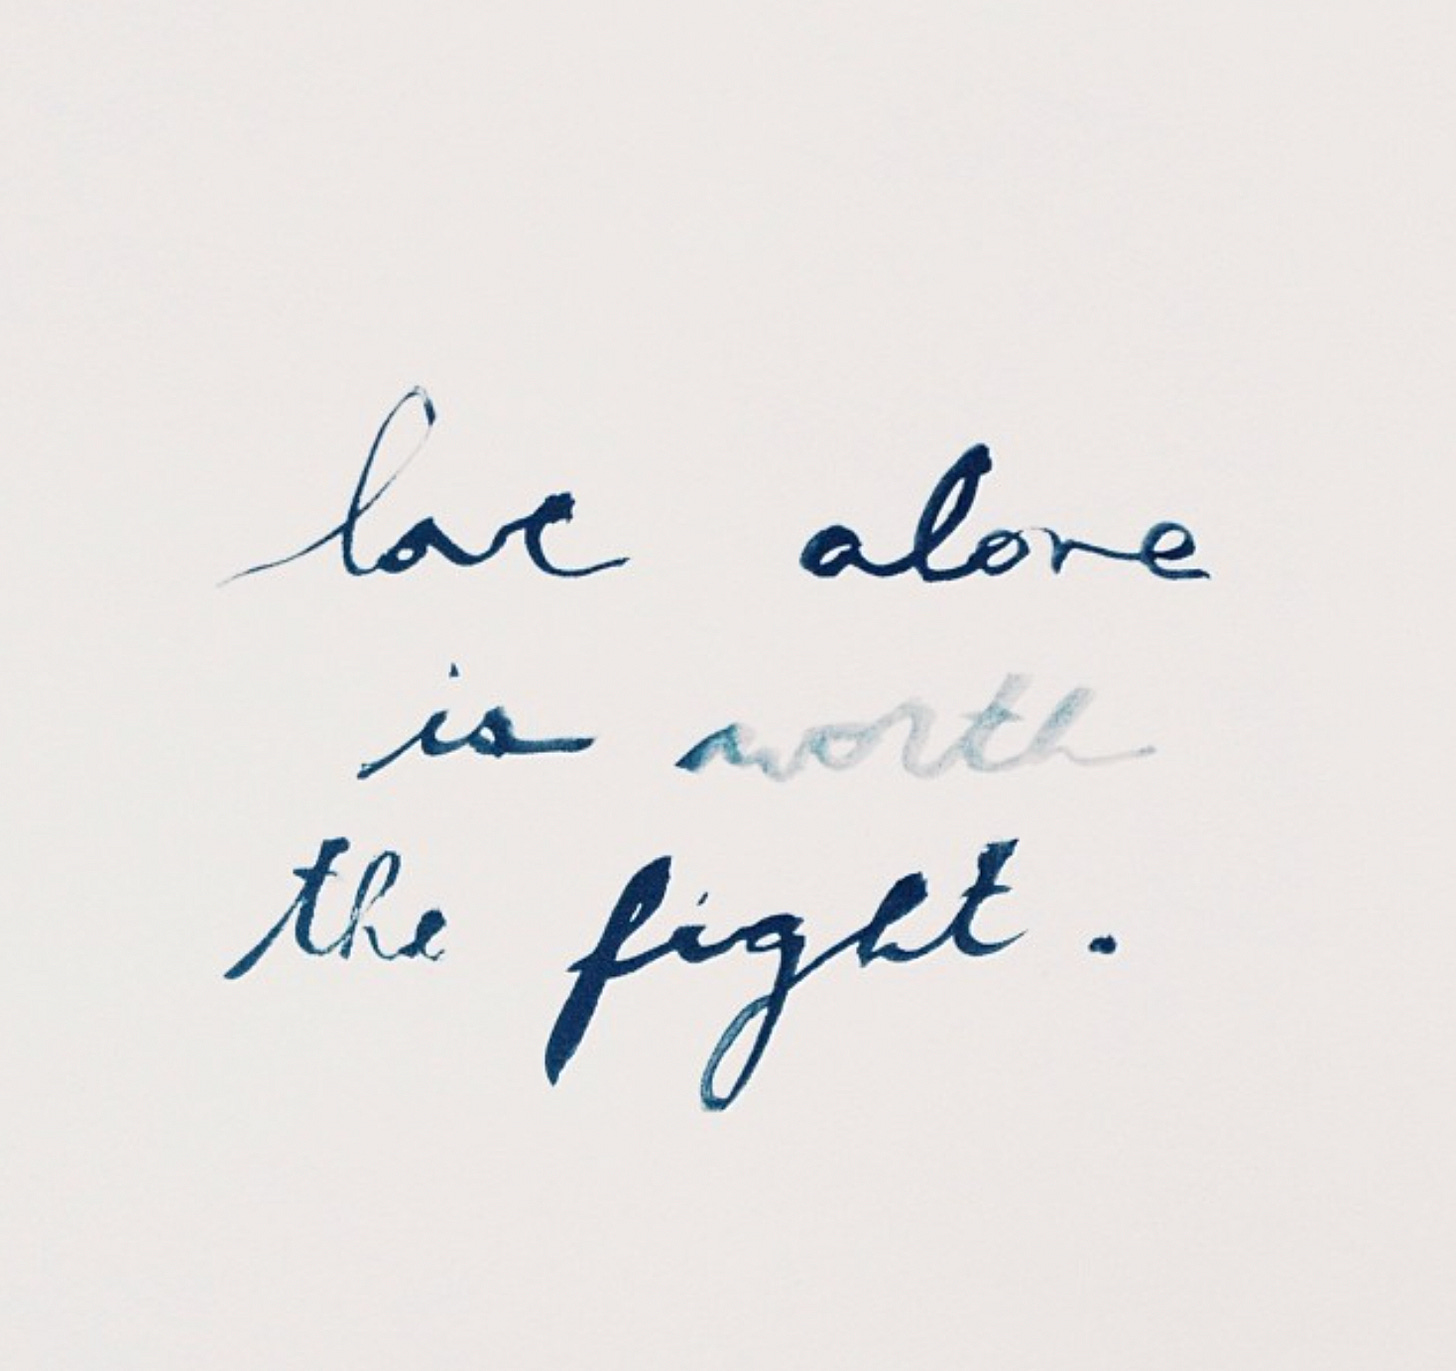 love alone
is worth
the fight.